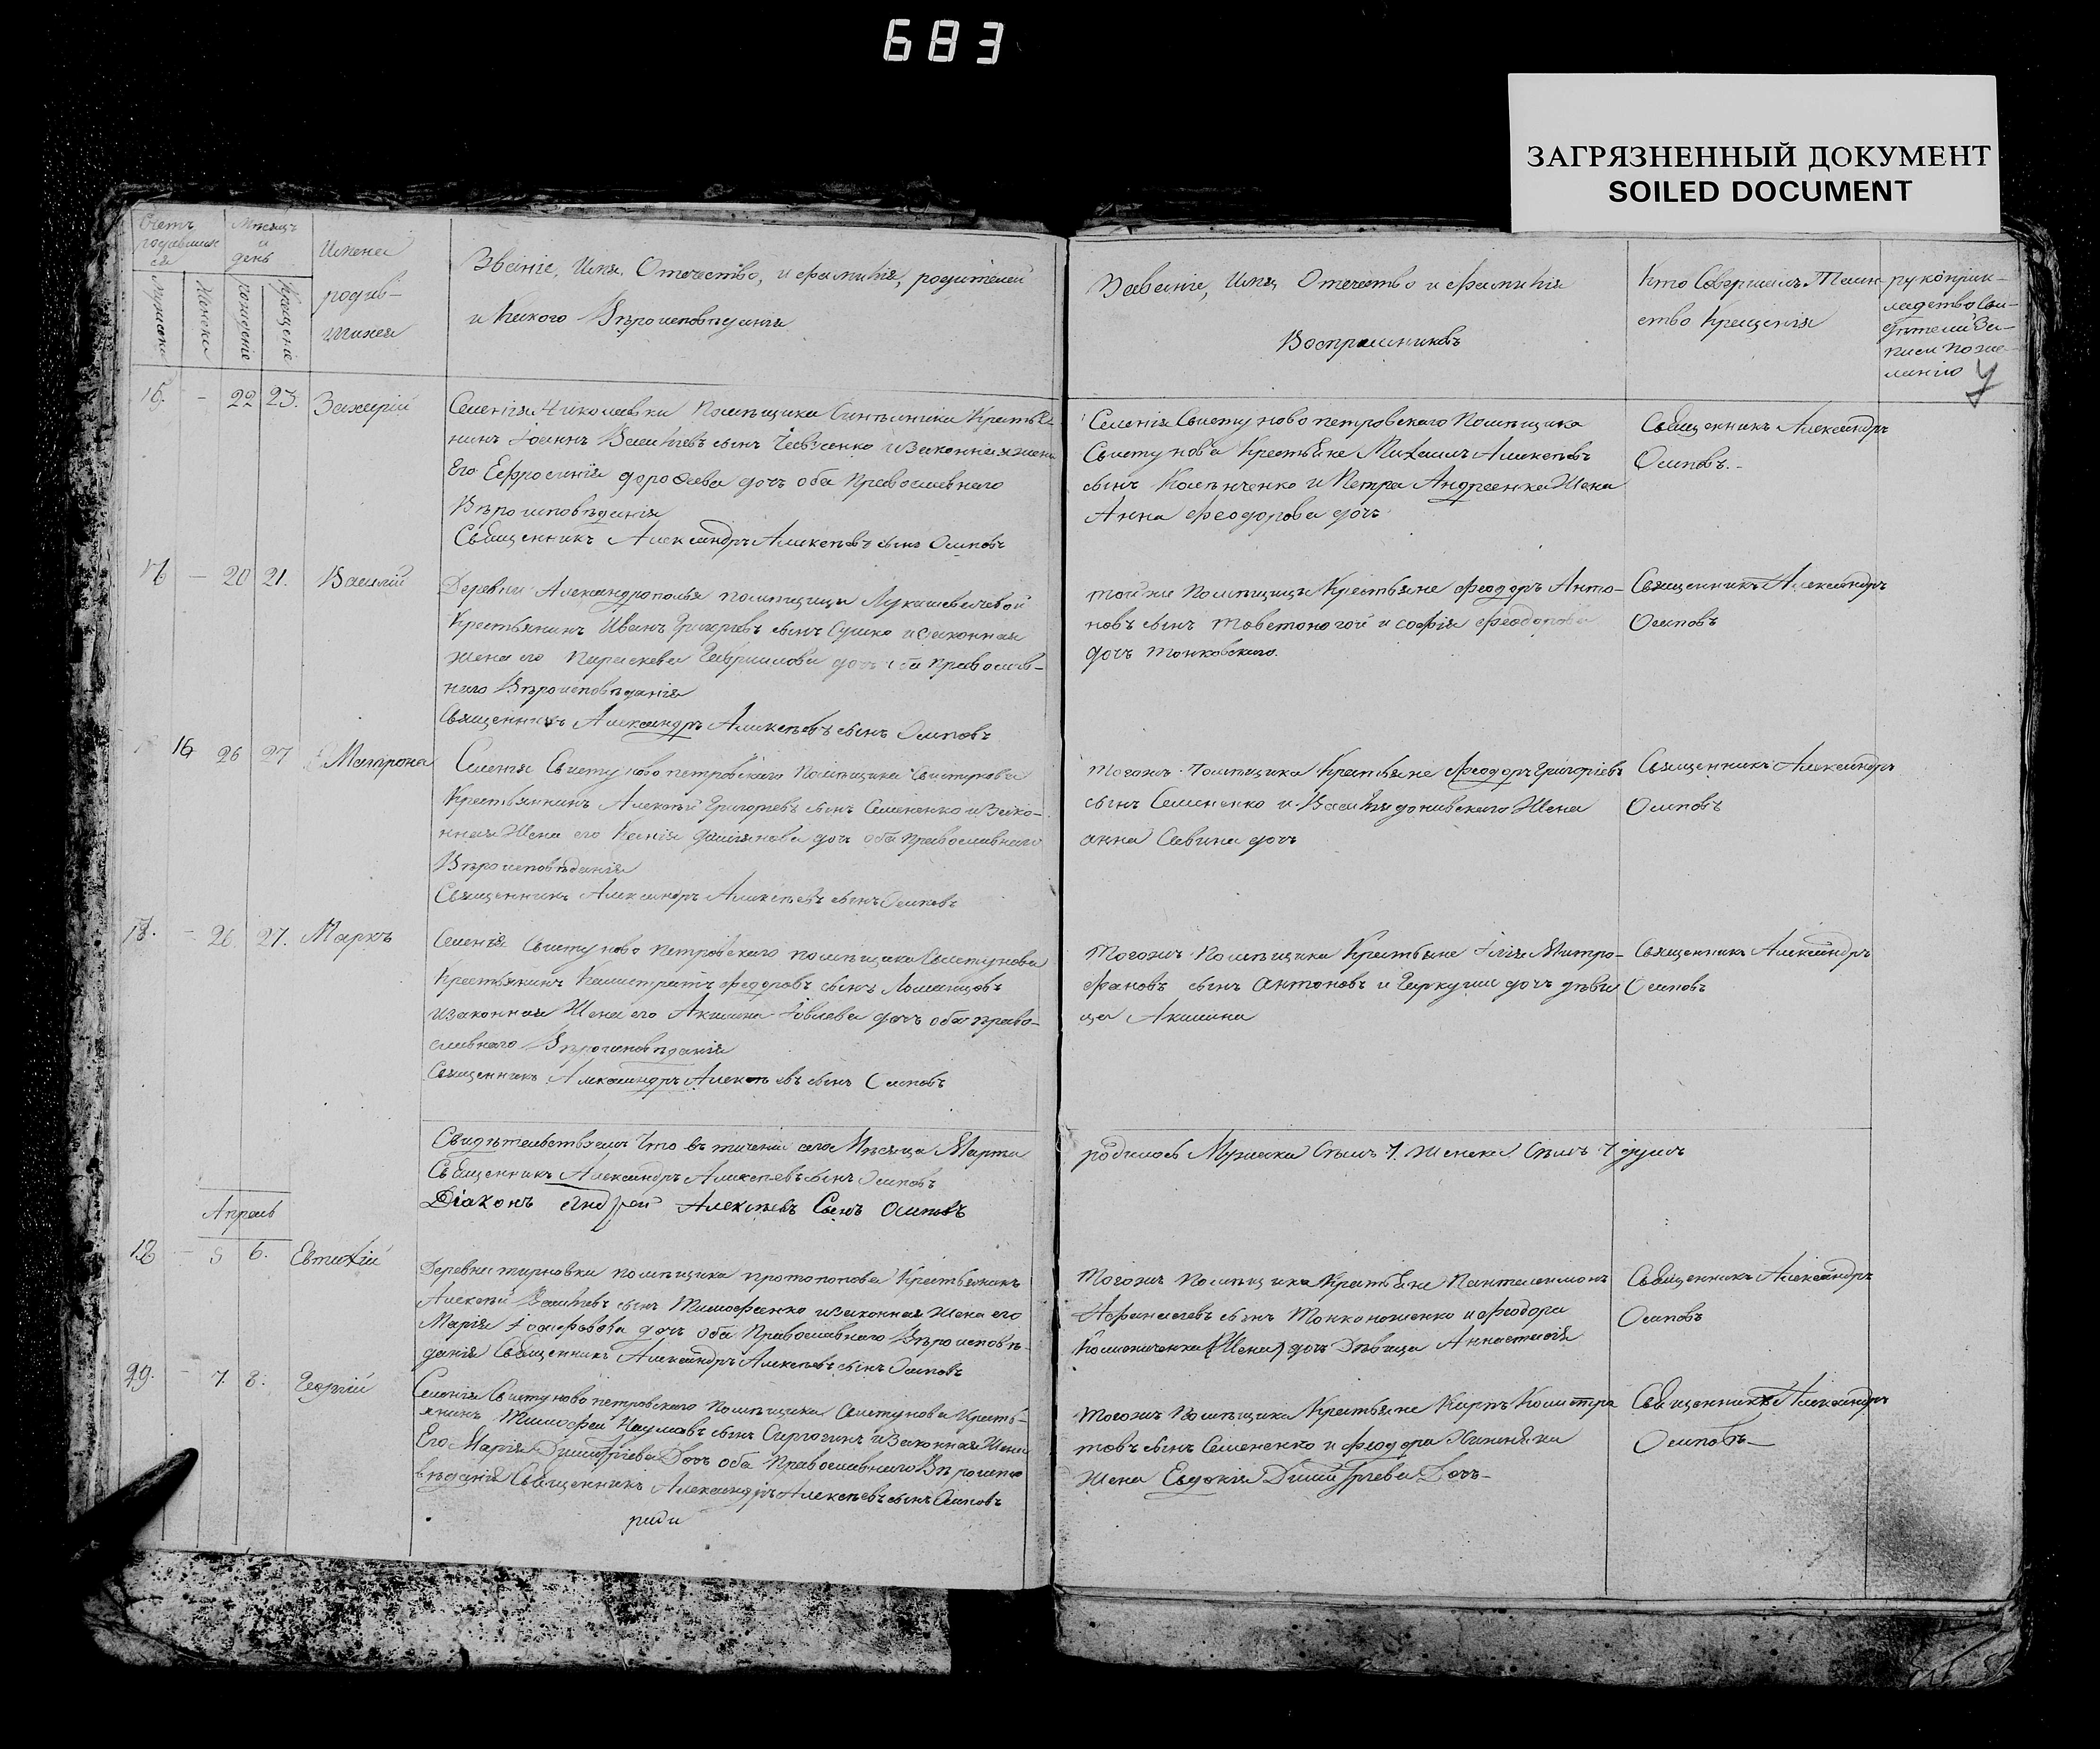 683
ЗАГРЯЗНЕННЫЙ ДОКУМЕНТ
SOILED DOCUMENT
Счетъ родившихся
Мѣсяцъ и день
Имена родившихся
Званіе, Имя, Отечество, и фамилія, родителей
и Какого Вѣроисповѣданія
Мужеска
Женска
рожденіе
Крещеніе
Званіе, Имя Отечество и фамилія
Воспріемниковъ
Кто Совершилъ Таинство Крещенія
рукоприкладство Свидѣтелей Записи по желанію
15. - 22 23. Захарій
Селенія Николаевки Помѣщика Синельника Крестья-
нинъ Іоаннъ Васильевъ сынъ и Законная жена
Его Ефросинія дорофеева дочь оба Православнаго
Вѣроисповѣданія
Священникъ Александръ Алексѣевъ сынъ Осиповъ
Селенія Свистуново петровскаго Помѣщика
Свистунова Крестьяне Михаилъ Алексѣевъ
сынъ и Петра Андреенка Жена
Анна Феодорова дочь
Священникъ Александръ
Осиповъ.
16 - 20 21. Василій
Деревни Александрополья помѣщицы Лукашевичевой
Крестьянинъ Иванъ Григорьевъ сынъ Сушко и законная
жена его Параскева Гавриилова дочь оба Православ-
наго Вѣроисповѣданія
Священникъ Александръ Алексѣевъ сынъ Осиповъ
той же Помѣщицы Крестьяне Феодоръ Анто-
новъ сынъ Товстоногой и Софія Феодорова
дочь Тонковскаго.
Священникъ Александръ
Осиповъ
16 26 27 Матрона
Селенія Свистуново петровскаго Помѣщика Свистунова
Крестьянинъ Алексѣй Григорьевъ сынъ Семененко и Зако-
нная Жена его Ксенія дочь оба Православнаго
Вѣроисповѣданія
Священникъ Александръ Алексѣевъ сынъ Осиповъ
Тогожъ Помѣщика Крестьяне Феодоръ Григорьевъ
сынъ Семененко и Жена
анна Савина дочь
Священникъ Александръ
Осиповъ
- 26. 27. Маркъ
Селенія Свистуново петровскаго помѣщика Свистунова
Крестьянинъ Калистратъ Федоровъ сынъ
и законная Жена его Акилина Іовлева дочь оба право-
славнаго Вѣроисповѣданія
Священникъ Александръ Алексѣевъ сынъ Осиповъ
Тогожъ Помѣщика Крестьяне Илія Митро-
фановъ сынъ Антоновъ и дочь дѣви
ца Акилина
Священникъ Александръ
Осиповъ
Свидѣтельствуемъ Что въ теченіи сего Мѣсяца Марта
родилось Мужеска 7. Женска 7 душъ
Священникъ Александръ Алексѣевъ сынъ Осиповъ
Діаконъ Андрей Алексѣевъ Сынъ Осиповъ
Апрель
18 - 5 6. Евтихій
Деревни тарновки помѣщика протопопова Крестьянинъ
Алексѣй Васильевъ сынъ Тимофѣенко и законная жена его
Марія Іосифовова дочь оба Православнаго Вѣроисповѣ-
данія Священникъ Александръ Алексѣевъ сынъ Осиповъ
Тогожъ Помѣщика Крестьяне Пантелеимонъ
Афанасіевъ сынъ Тонконоженко и Феодора
(Жена) дочь Дѣвица Анастасія
Священникъ Александръ
Осиповъ
- 7. 8. Георгій
Селенія Свистуново петровскаго Помѣщика Свистунова Кресть-
янинъ Тимофей Наумовъ сынъ и Законная Жена
Его Марія Димитріева Дочь оба Православнаго Вѣроиспо
вѣданія Священникъ Александръ Алексѣевъ сынъ Осиповъ
Тогожъ Помѣщика Крестьяне Карпъ Калистра
товъ сынъ Семененко и Феодора
Жена Евдокія Димитріева Дочь
Священникъ Александръ
Осиповъ